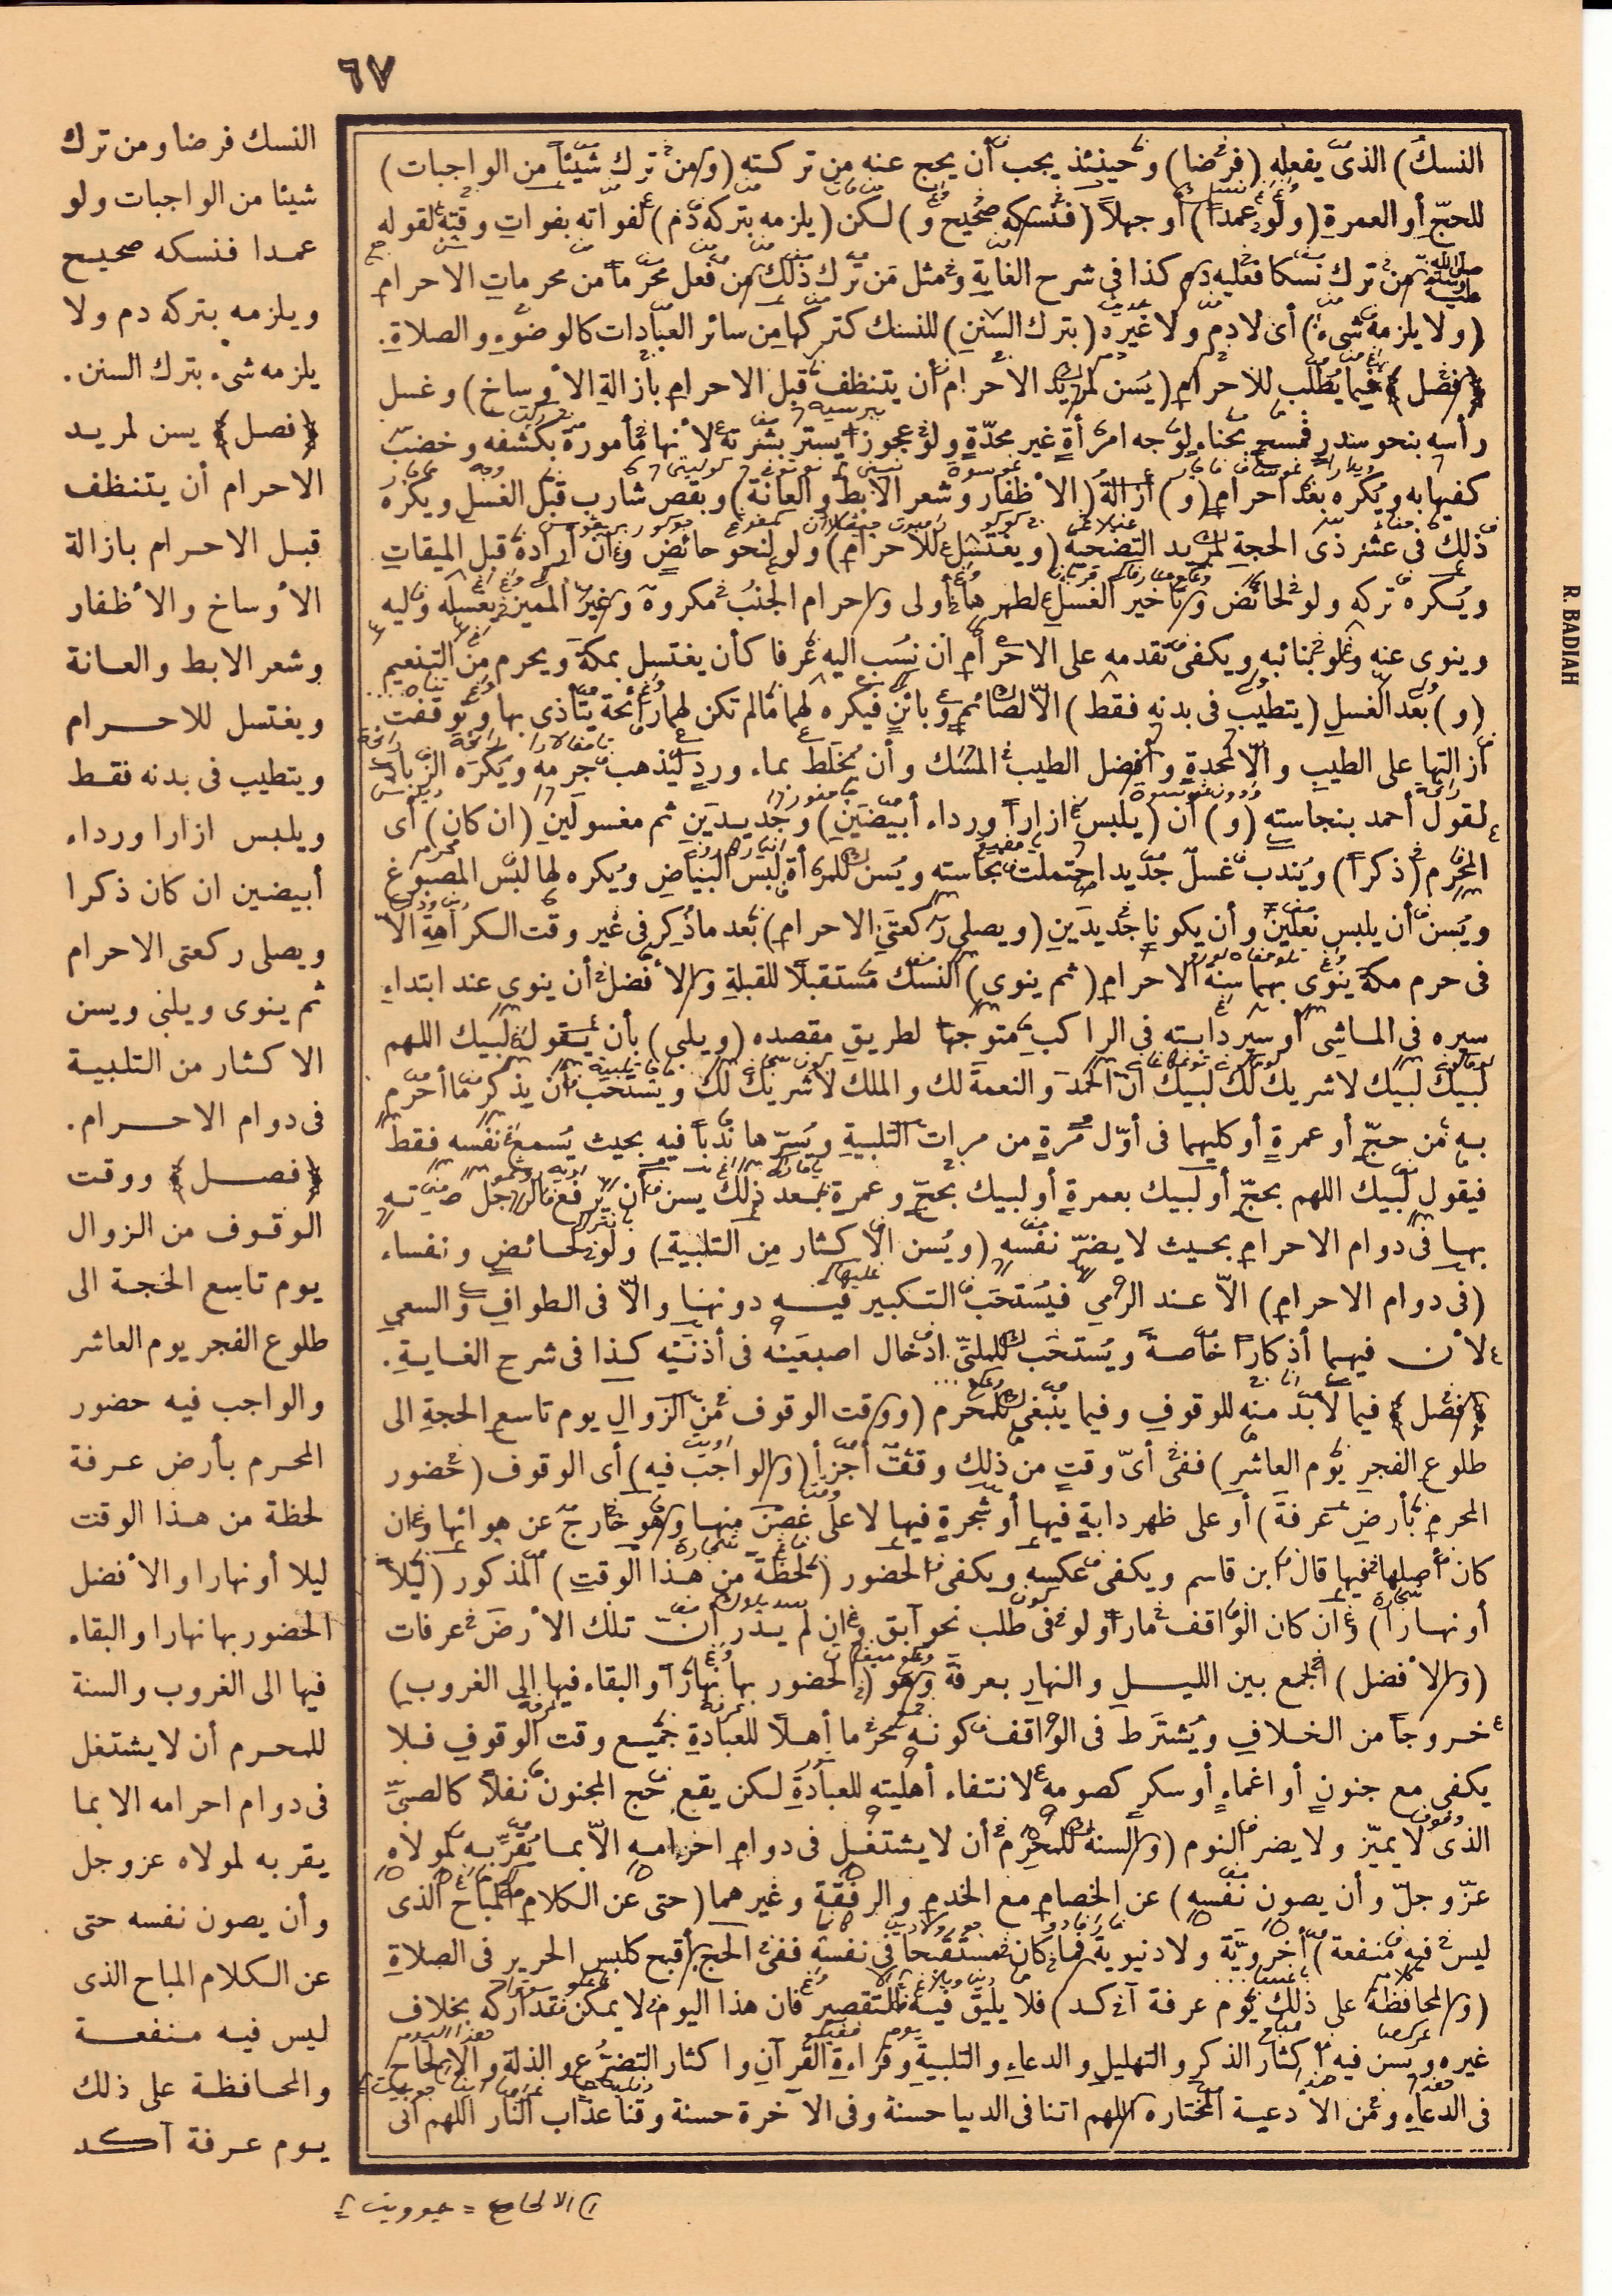 ٦٧
النسك) الذى يفعله (فرضا) وحينئذ يجب أن يحج عنه من تركته (ومن ترك شيئا من الواجبات)
للحج أو العمرة (ولو عمدا) أو جهلا (فنسكه صحيح و) لكن (يلزمه بتركه دم) لفواته بفوات وقته لقوله
صلى الله عليه وسلم من ترك نسكا فعليه دم كذا فى شرح الغاية ومثل من ترك ذلك من فعل محرما من محرمات الاحرام
(ولا يلزمه شىء) أى لا دم ولا غيره (بترك السنن) للنسك كتركها من سائر العبادات كالوضوء والصلاة.
﴿فصل﴾ فيما يطلب للاحرام (يسن لمريد الاحرام أن يتنظف قبل الاحرام بازالة الأوساخ) وغسل
رأسه بنحو سدر فمسح بحناء لوجه امرأة غير محدة ولو عجوزا يستر بشرته لأنها مأمورة بكشفه وخضب
كفيها به ويكره بعد احرام (و) ازالة (الأظفار وشعر الابط والعانة) وبقص شارب قبل الغسل ويكره
ذلك فى عشر ذى الحجة لمريد التضحية (ويغتسل للاحرام) ولو لنحو حائض وان أراده قبل الميقات
ويكره تركه ولو لحائض وتأخير الغسل لطهرها أولى واحرام الجنب مكروه وغير المميز يغسله وليه
وينوى عنه ولو بنائبه ويكفى تقدمه على الاحرام ان نسب اليه عرفا كأن يغتسل بمكة ويحرم من التنعيم
(و) بعد الغسل (يتطيب فى بدنه فقط) الا لصائم وبائن فيكره لهما مالم تكن لهما رائحة يتأذى بها وتوقفت
ازالتها على الطيب والا لمحدة وأفضل الطيب المسك وأن يخلط بماء ورد ليذهب جرمه ويكره الزباد
لقول أحمد بنجاسته (و) أن (يلبس ازارا ورداء أبيضين) وجديدين ثم مغسولين (ان كان) أى
المحرم (ذكرا) ويندب غسل جديد احتملت نجاسته ويسن للمرأة لبس البياض ويكره لها لبس المصبوغ
ويسن أن يلبس نعلين وأن يكونا جديدين (ويصلى ركعتى الاحرام) بعد ماذكر فى غير وقت الكراهة الا
فى حرم مكة ينوى بهما سنة الاحرام (ثم ينوى) النسك مستقبلا للقبلة والأفضل أن ينوى عند ابتداء
سيره فى الماشى أو سير دابته فى الراكب متوجها لطريق مقصده (ويلبى) بأن يقول لبيك اللهم
لبيك لبيك لا شريك لك لبيك ان الحمد والنعمة لك والملك لا شريك لك ويستحب أن يذكر ما أحرم
به من حج أو عمرة أو كليهما فى أول مرة من مرات التلبية ويسرها ندبا فيه بحيث يسمع نفسه فقط
فيقول لبيك اللهم بحج أو لبيك بعمرة أو لبيك بحج وعمرة بعد ذلك يسن أن يرفع الرجل صوته
بها فى دوام الاحرام بحيث لا يضر نفسه (ويسن الاكثار من التلبية) ولو لحائض ونفساء
(فى دوام الاحرام) الا عند الرمى فيستحب التكبير فيه دونها والا فى الطواف والسعي
لأن فيهما أذكارا خاصة ويستحب للملبى ادخال اصبعيه فى أذنيه كذا فى شرح الغاية.
﴿فصل﴾ فيما لا بد منه للوقوف وفيما ينبغى للمحرم (ووقت الوقوف من الزوال يوم تاسع الحجة الى
طلوع الفجر يوم العاشر) ففى أى وقت من ذلك وقف أجزأ (والواجب فيه) أى الوقوف (حضور
المحرم بأرض عرفة) أو على ظهر دابة فيها أو شجرة فيها لا على غصن منها وهو خارج عن هوائها وان
كان أصلها فيها قال ابن قاسم ويكفى عكسه ويكفى الحضور (لحظة من هذا الوقت) المذكور (ليلا
أو نهارا) وان كان الواقف مارا ولو فى طلب نحو آبق وان لم يدر ان تلك الأرض عرفات
(والأفضل) الجمع بين الليل والنهار بعرفة وهو (الحضور بها نهارا والبقاء فيها الى الغروب)
خروجا من الخلاف ويشترط فى الواقف كونه محرما أهلا للعبادة جميع وقت الوقوف فلا
يكفى مع جنون أو اغماء أو سكر كصومه لانتفاء أهليته للعبادة لكن يقع حج المجنون نفلا كالصبى
الذى لا يميز ولا يضر النوم (والسنة للمحرم أن لا يشتغل فى دوام احرامه الا بما يقربه لمولاه
عز وجل وأن يصون نفسه) عن الخصام مع الخدم والرفقة وغيرهما (حتى عن الكلام المباح الذى
ليس فيه منفعة) أخروية ولا دنيوية فما كان مستقبحا فى نفسه ففى الحج أقبح كلبس الحرير فى الصلاة
(والمحافظة على ذلك يوم عرفة آكد) فلا يليق فيه التقصير فان هذا اليوم لا يمكن تداركه بخلاف
غيره ويسن فيه اكثار الذكر والتهليل والدعاء والتلبية وقراءة القرآن واكثار التضرع والذلة والالحاح
فى الدعاء ومن الأدعية المختارة اللهم اتنا فى الدنيا حسنة وفى الآخرة حسنة وقنا عذاب النار اللهم انى
النسك فرضا ومن ترك
شيئا من الواجبات ولو
عمدا فنسكه صحيح
ويلزمه بتركه دم ولا
يلزمه شىء بترك السنن.
﴿فصل﴾ يسن لمريد
الاحرام أن يتنظف
قبل الاحرام بازالة
الأوساخ والأظفار
وشعر الابط والعانة
ويغتسل للاحرام
ويتطيب فى بدنه فقط
ويلبس ازارا ورداء
أبيضين ان كان ذكرا
ويصلى ركعتى الاحرام
ثم ينوى ويلبى ويسن
الاكثار من التلبية
فى دوام الاحرام.
﴿فصل﴾ ووقت
الوقوف من الزوال
يوم تاسع الحجة الى
طلوع الفجر يوم العاشر
والواجب فيه حضور
المحرم بأرض عرفة
لحظة من هذا الوقت
ليلا أو نهارا والأفضل
الحضور بها نهارا والبقاء
فيها الى الغروب والسنة
للمحرم أن لا يشتغل
فى دوام احرامه الا بما
يقربه لمولاه عز وجل
وأن يصون نفسه حتى
عن الكلام المباح الذى
ليس فيه منفعة
والمحافظة على ذلك
يوم عرفة آكد
الالحاح =
R. BADIAH